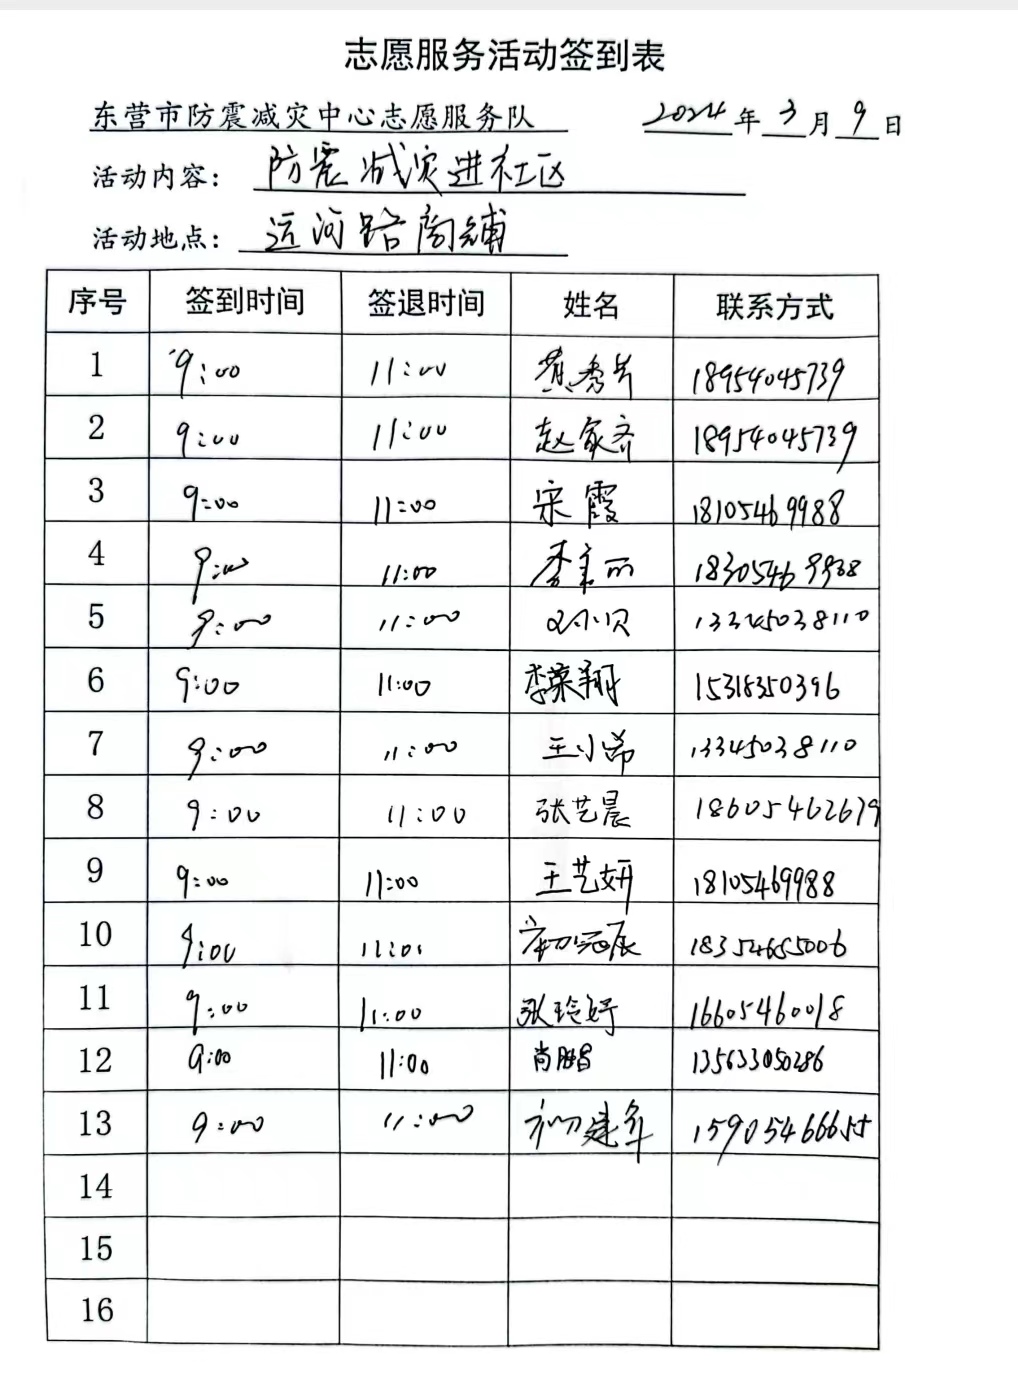 志愿服务活动签到表
东营市防震减灾中心志愿服务队 2024年3月9日
活动内容: 防震减灾进社区
活动地点: 运河路商铺
序号 签到时间 签退时间 姓名 联系方式
1 9:00 11:00 黄秀芹 18954045739
2 9:00 11:00 赵家齐 18954045739
3 9:00 11:00 宋霞 18105469988
4 9:00 11:00 李丽 18305469938
5 9:00 11:00 刘小贝 13345038110
6 9:00 11:00 李荣翔 15318350396
7 9:00 11:00 王小希 13345038110
8 9:00 11:00 张艺晨 18605462679
9 9:00 11:00 王艺妍 18105469988
10 9:00 11:01 18354685006
11 9:00 11:00 张玲妤 16605460018
12 9:00 11:00 尚鹏昌 13563305286
13 9:00 11:00 初建军 15905466655
14
15
16